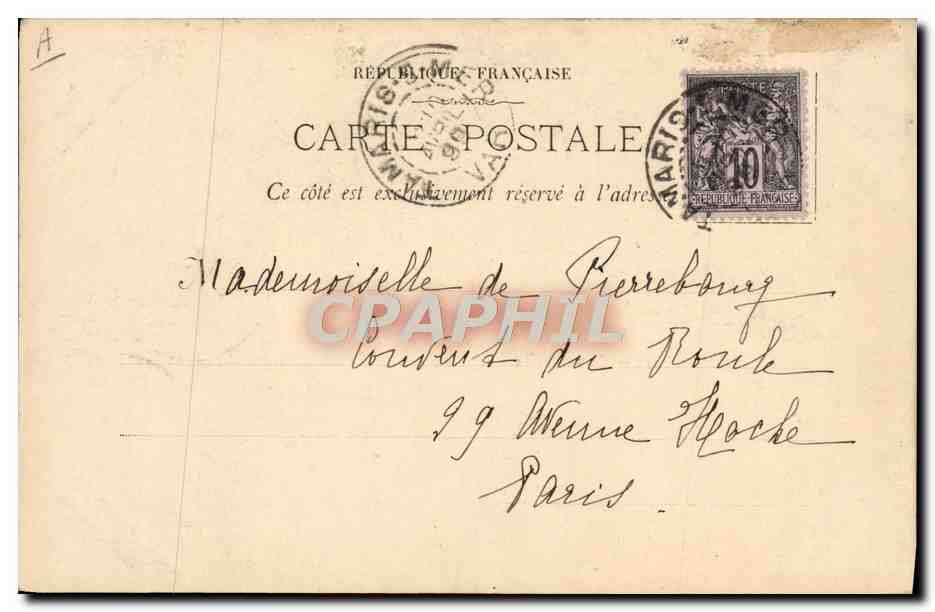 A
RÉPUBLIQUE FRANÇAISE
CARTE POSTALE
TAMARIS-S-MER
AVRIL
VAR
POSTES
10
RÉPUBLIQUE FRANÇAISE
Ce côté est exclusivement réservé à l'adresse
Mademoiselle de Pierrebourg
CPAPHIL
Couvent du Roule
29 Avenue Hoche
Paris.